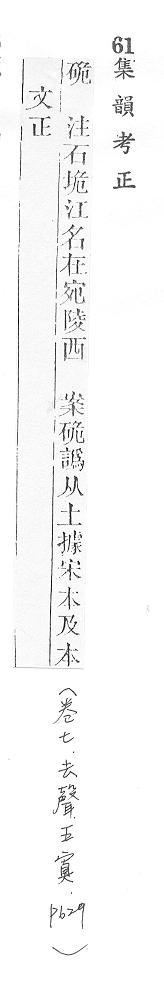 61集韻考正
硊　注石垝江名在宛陵西　案硊譌从土據宋本及本
文正
(卷七.去聲五寘.p629)